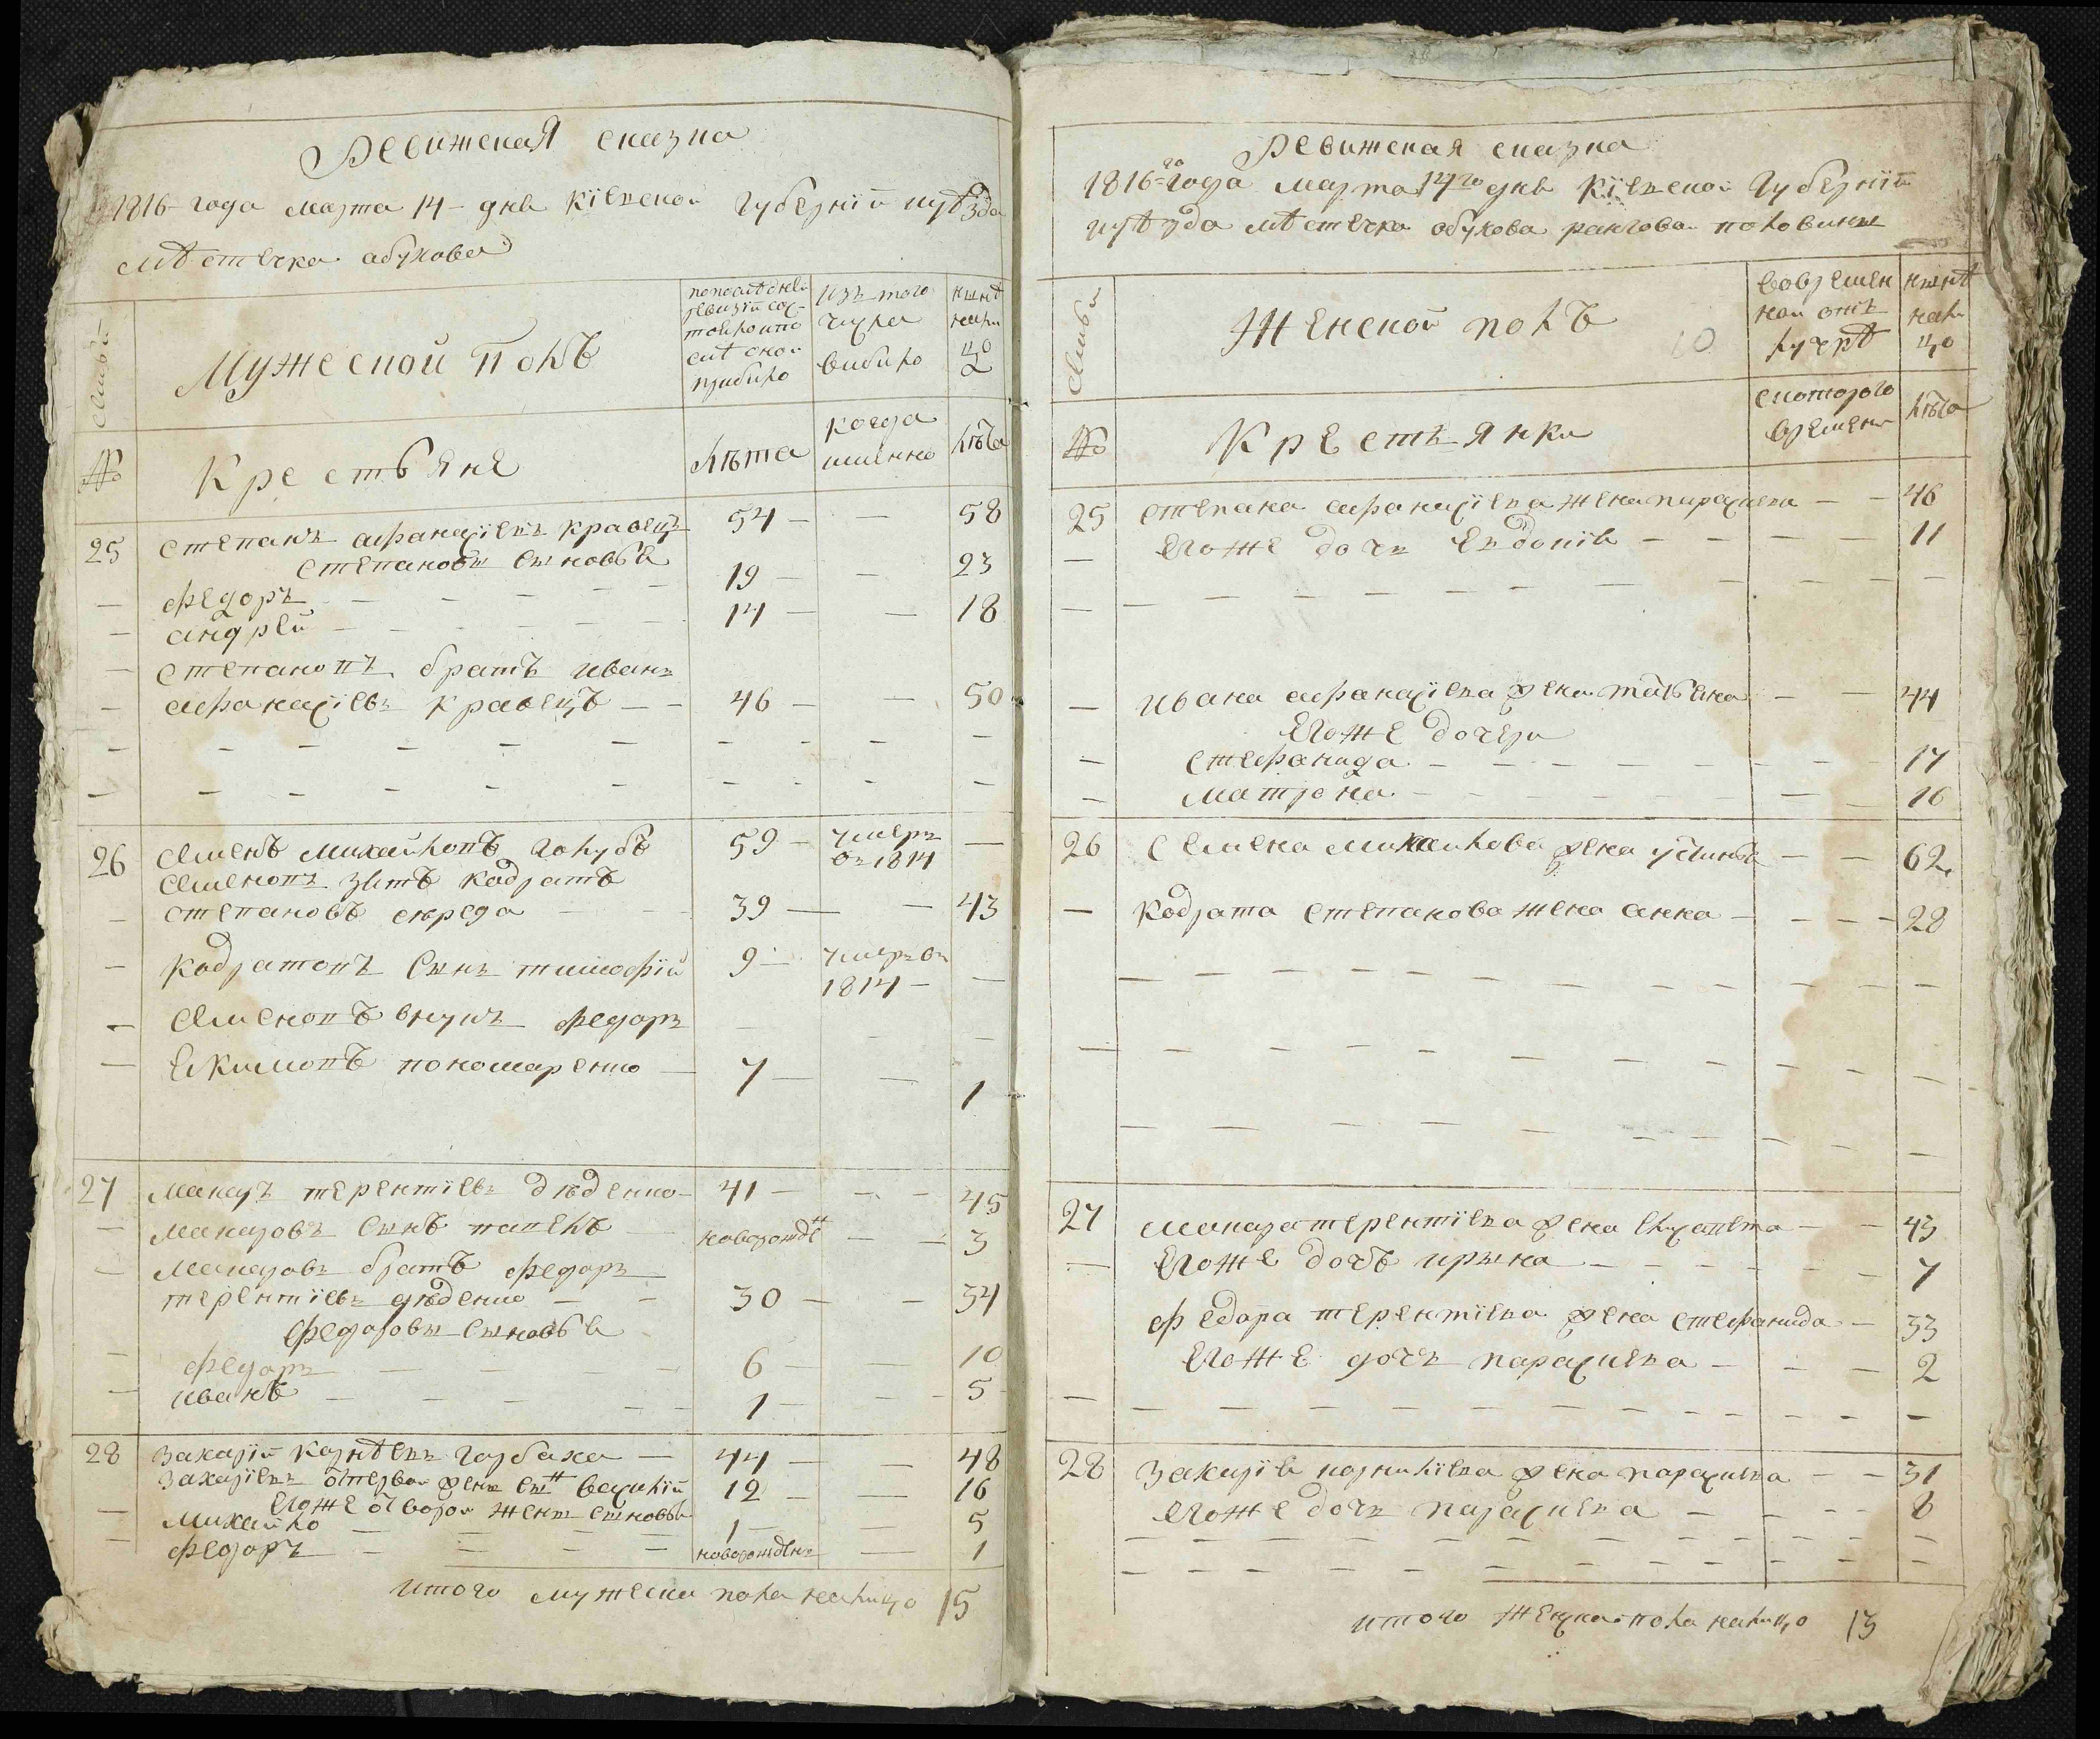 Ревижская сказка
1816 года марта 14 дня Кіевской губерніи и уѣзда
мѣстечка обухова
Семьи
Мужеской полъ
по последней ревизіи состояло и после оной прибыло
изъ того числа выбыло
нынѣ налицо
№
Крестьяне
лѣта
когда именно
лѣта
25 степанъ афанасіевъ кравецъ 54 — — 58
степановы сыновья
федоръ 19 — — 23
андрей 14 — — 18
степановъ братъ иванъ
афанасіевъ кравецъ — 46 — — 50
26 Семенъ михайловъ голубъ 59 — умеръ въ 1814 —
Семеновъ зять кодратъ
степановъ середа 39 — — 43
кодратовъ сынъ тимофій 9 — умеръ въ 1814 —
Семеновъ внукъ федоръ
Екимовъ пономаренко — 7 — — 1
27 макаръ терентіевъ дѣденко 41 — — 45
макаровъ сынъ павелъ новорожде 3
макаровъ братъ федоръ
терентіевъ дѣденко 30 — — 34
федоровы сыновья
федоръ 6 — — 10
иванъ 1 — — 5
28 захарій корнѣевъ горбаха — 44 — — 48
захаріевъ отпервой жены сынъ василій 12 — — 16
егоже отвторой жены сыновья
михайло 1 — — 5
федоръ новорожденъ — 1
итого мужеска пола налицо 15
Ревижская сказка
1816го года марта 14го дня Кіевской губерніи
и уѣзда мѣстечка обухова ранговой половины
Семьи
Женской полъ
во временной отлучкѣ
нынѣ налицо
№
Крестьянки
с которого времени
лѣта
25 степана афанасіева жена параскева — — 46
егоже дочь евдокія — — — 11
ивана афанасіева жена татьяна — — 44
егоже дочери
стефанида — 17
матрона — 16
26 семена михайлова жена устинья — — 62
кодрата степанова жена анна — — 28
27 макара терентіева жена елизавета — — 43
егоже дочь ирына — 7
федора терентіева жена стефанида — 33
егоже дочь параскева — — 2
28 захарія корниліева жена параскева — — 31
егоже дочь параскева — 8
итого женска пола налицо 13